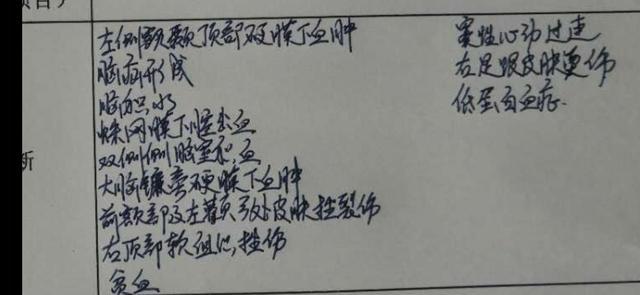 项目）
左侧额颞顶部硬膜下血肿
脑疝形成
脑积水
蛛网膜下腔出血
双侧侧脑室积血
大脑镰旁硬膜下血肿
前额部及左颧弓处皮肤挫裂伤
右顶部软组织挫伤
贫血
窦性心动过速
右足跟皮肤烫伤
低蛋白血症.
断